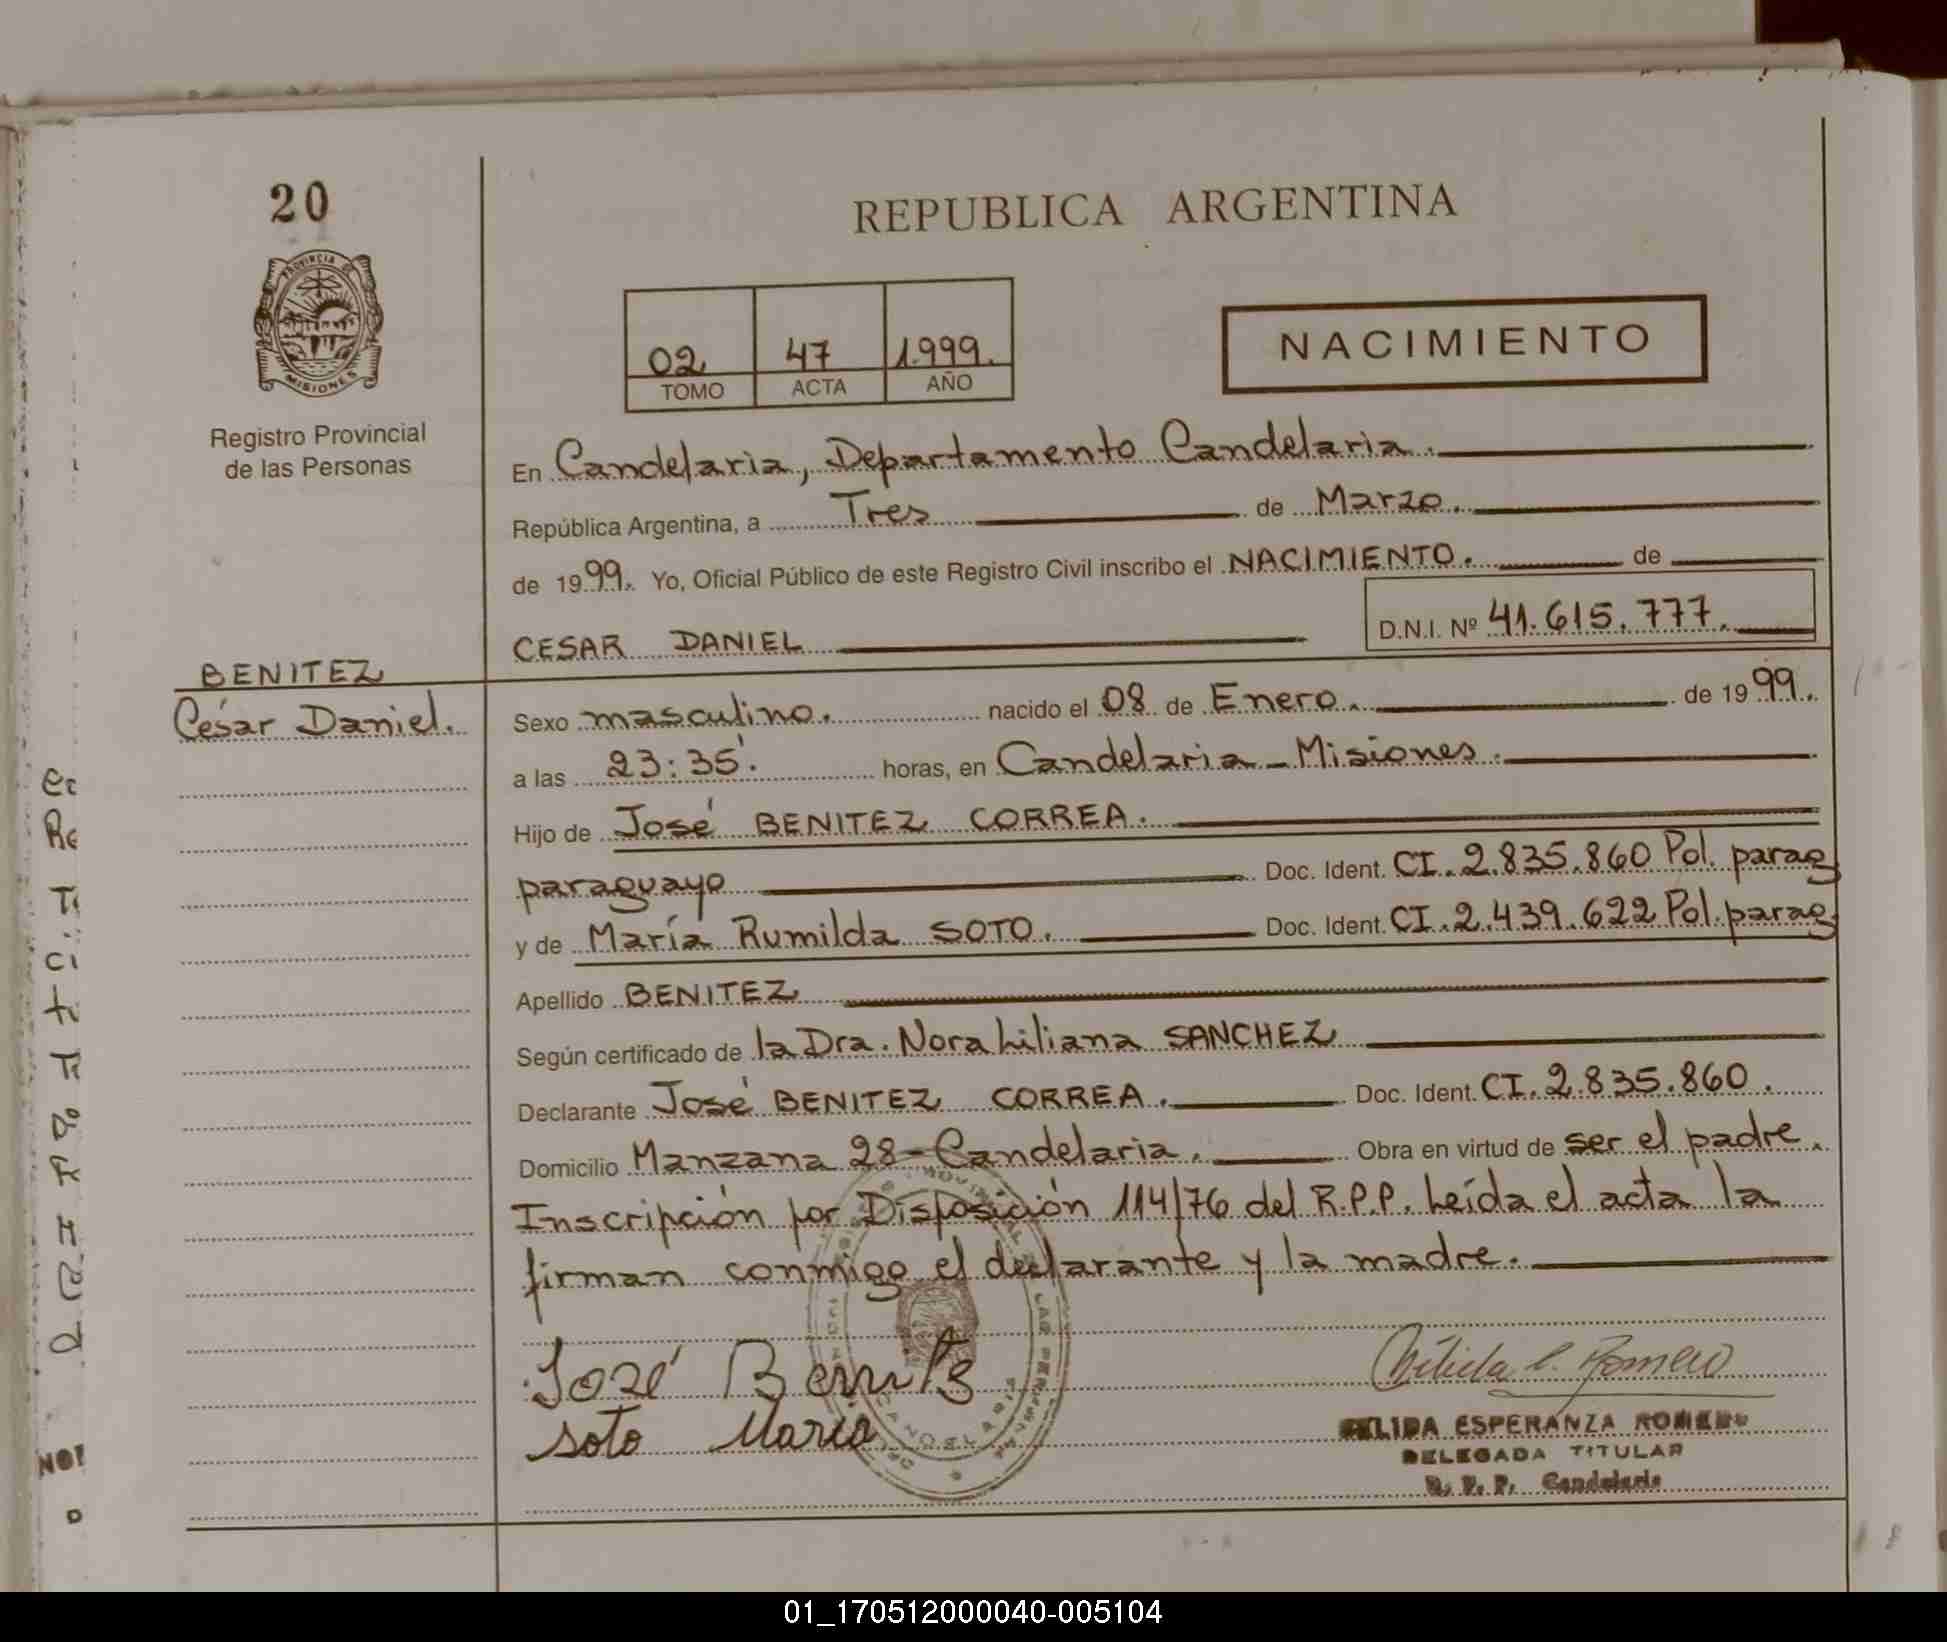 20
REPUBLICA ARGENTINA
PROVINCIA DE
MISIONES
Registro Provincial
de las Personas
02 47 1.999.
TOMO ACTA AÑO
NACIMIENTO
En Candelaria, Departamento Candelaria.
República Argentina, a Tres de Marzo.
de 1999. Yo, Oficial Público de este Registro Civil inscribo el NACIMIENTO. de
CESAR DANIEL D.N.I. Nº 41.615.777.
BENITEZ
César Daniel.
Sexo masculino. nacido el 08 de Enero. de 1999.
a las 23:35'. horas, en Candelaria - Misiones.
Hijo de José BENITEZ CORREA.
paraguayo Doc. Ident. CI. 2.835.860 Pol. parag
y de María Rumilda SOTO. Doc. Ident. CI. 2.439.622 Pol. parag
Apellido BENITEZ
Según certificado de la Dra. Nora Liliana SANCHEZ
Declarante José BENITEZ CORREA. Doc. Ident. CI. 2.835.860.
Domicilio Manzana 28 - Candelaria. Obra en virtud de ser el padre.
Inscripción por Disposición 114/76 del R.P.P. Leída el acta la
firman conmigo el declarante y la madre.
José Benits
Soto Maria
ESPERANZA ROMERO
DELEGADA TITULAR
R. P. P. Candelaria
01_170512000040-005104